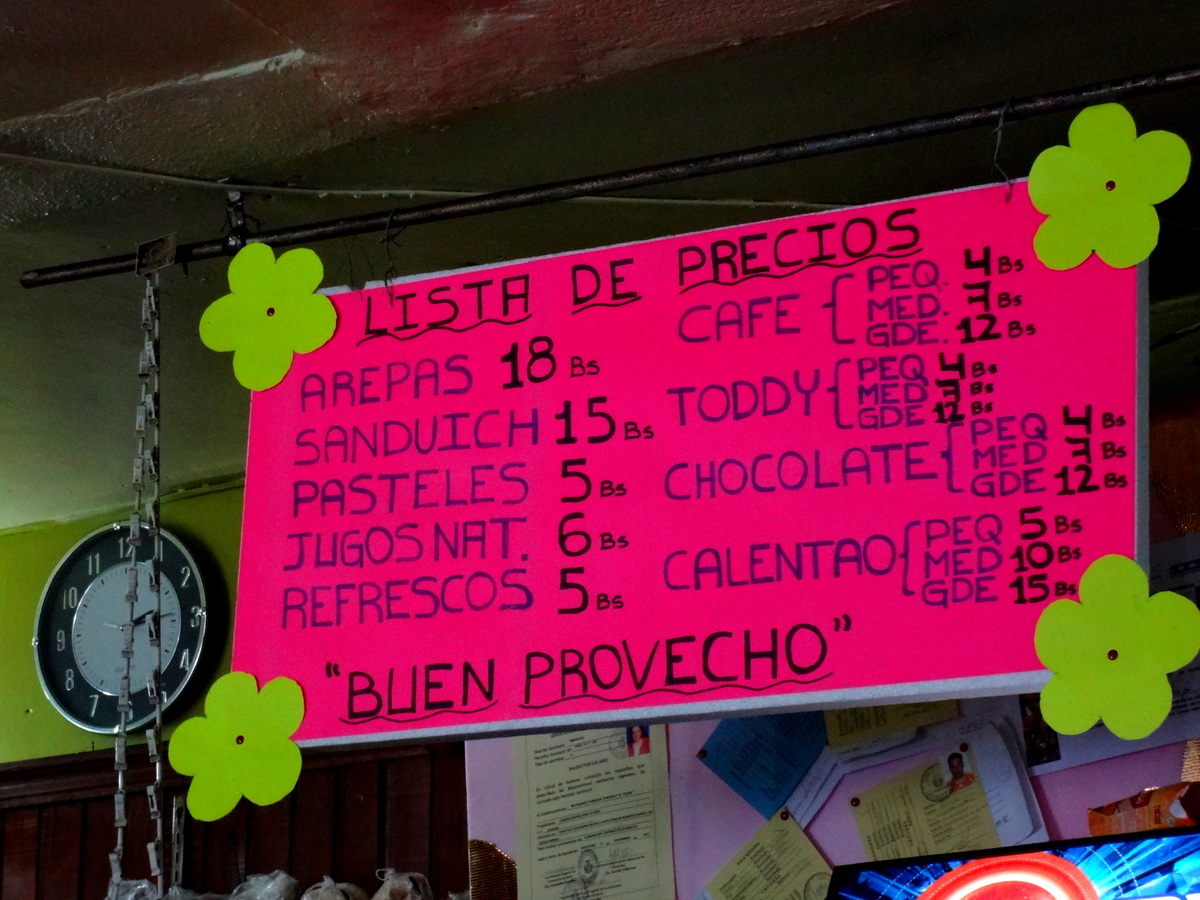 LISTA DE PRECIOS
AREPAS 18 Bs
SANDUICH 15 Bs
PASTELES 5 Bs
JUGOS NAT. 6 Bs
REFRESCOS 5 Bs
CAFE { PEQ. 4 Bs
MED. 7 Bs
GDE. 12 Bs
TODDY { PEQ 4 Bs
MED 7 Bs
GDE 12 Bs
CHOCOLATE { PEQ 4 Bs
MED 7 Bs
GDE 12 Bs
CALENTAO { PEQ 5 Bs
MED 10 Bs
GDE 15 Bs
"BUEN PROVECHO"
11 12 2 3 4 7 8 9 10